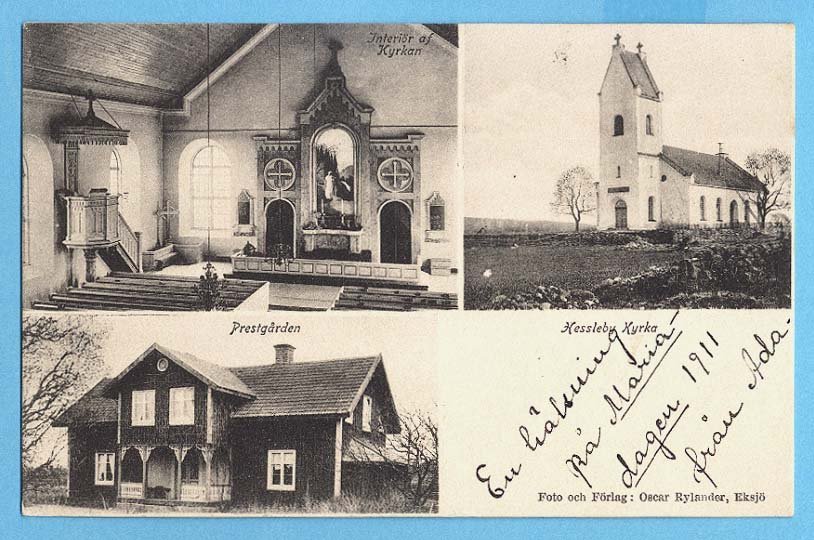 Interiör af
Kyrkan
Prestgården
Hessleby Kyrka
En hälsning
på Maria-
dagen 1911
från Ada-
Foto och Förlag: Oscar Rylander, Eksjö